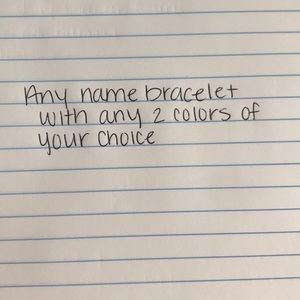 Any name bracelet
with any 2 colors of
your choice